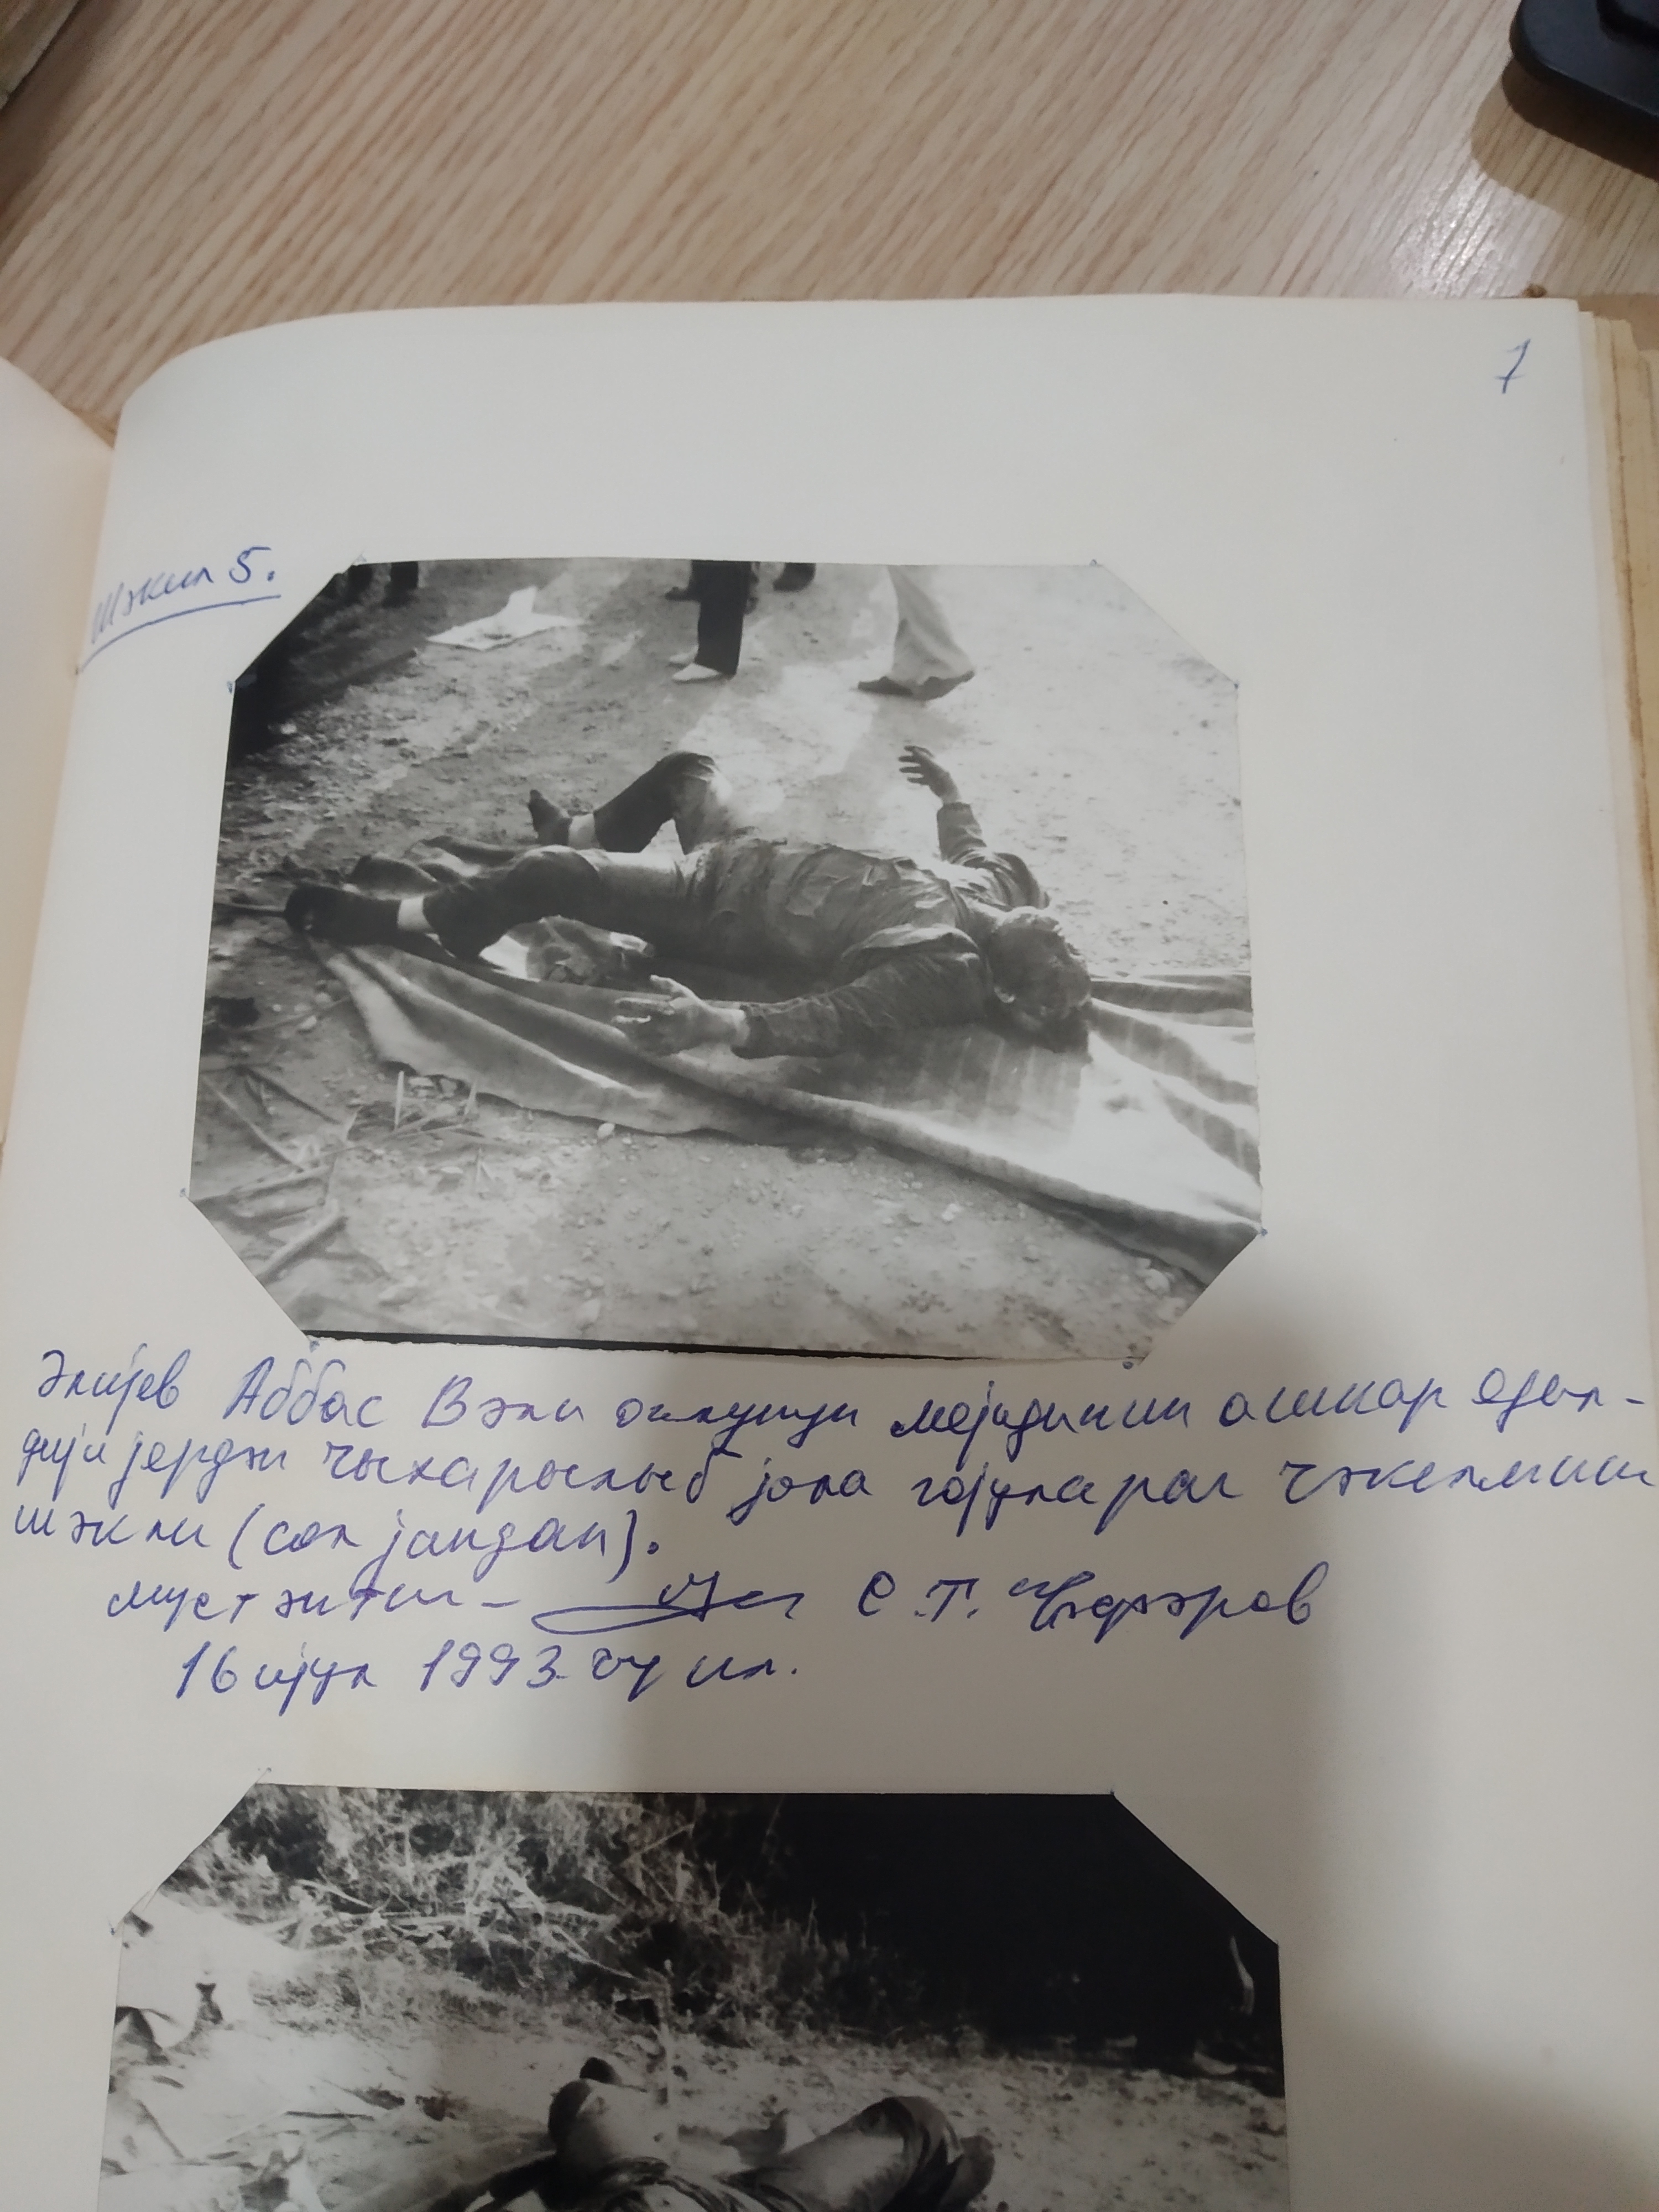 7
Шәкил 5.
Әлијев Аббас Вәли оғлунун мејидинин ашкар едил-
дији јердән чыхарылыб јола гојулараг чәкилмиш
шәкли (сол јандан).
мүстәнтиг – С.Т. Чәфәров
16 ијул 1993-чү ил.